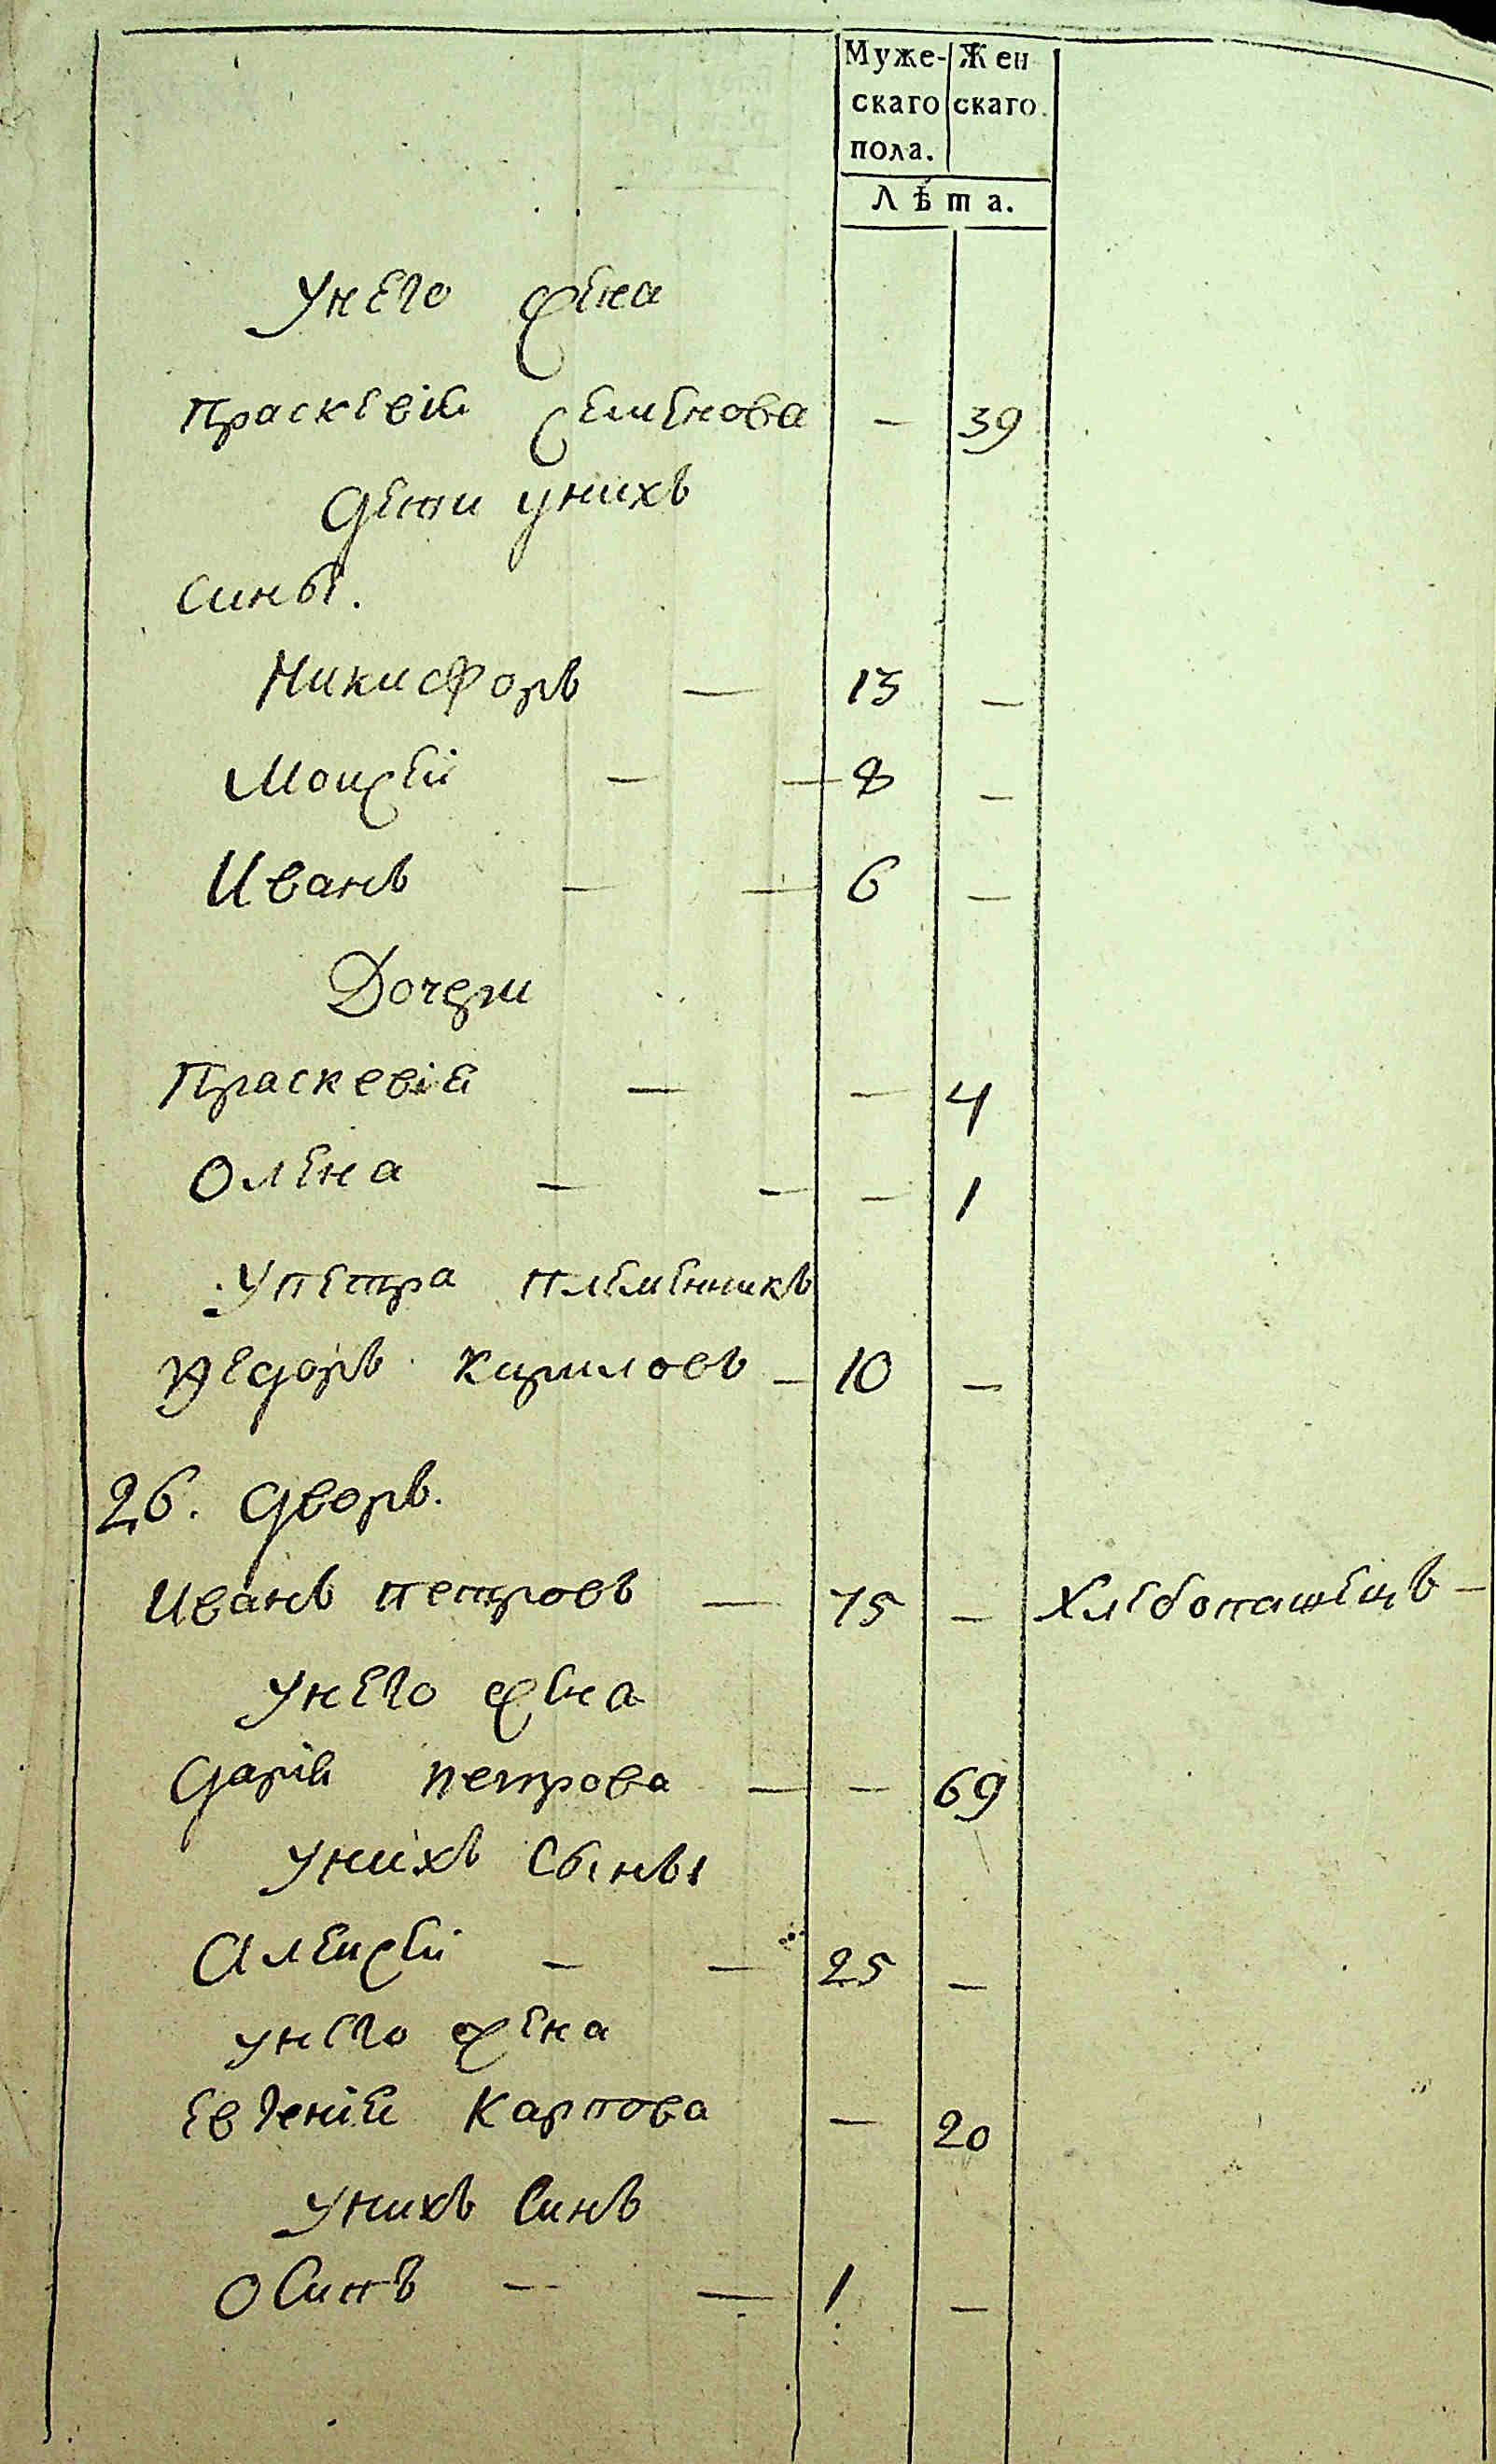 Муже- Жен
скаго скаго
пола.
Лѣта.
унего жена
Праскевія Семенова — 39
дети унихъ
Сины.
Никисфоръ — 13 —
Моисей — — 8 —
Иванъ — — 6 —
Дочери
Праскевія — — 4
Олена — — — 1
упетра племенникъ
Ѳедоръ Кириловъ — 10 —
26. дворъ.
Иванъ петровъ — 75 — Хлебопашецъ —
унего жена
дарія петрова — — 69
унихъ Сыны
Алексей — — 25 —
унего жена
Евгенія Карпова — 20
унихъ Синъ
Осипъ — — 1 —